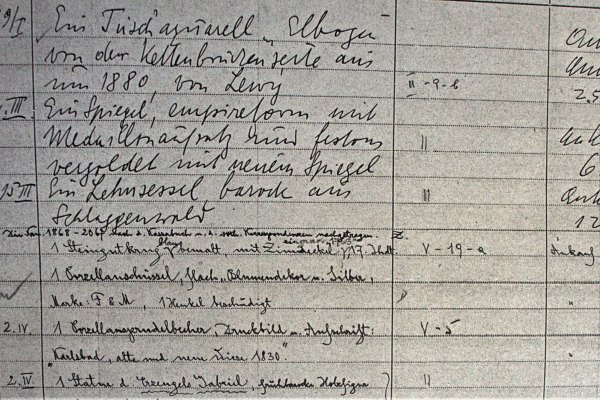 9/I Ein Tuschaquarell „Elbogen
von der Kettenbrückenseite aus
um 1880, von Lewy II-9-b 2.5
III Ein Spiegel, empireform mit
Medaillonaufsatz und festons "
vergoldet mit neuem Spiegel 6
15 III Ein Lehnsessel barock aus "
Schlaggenwald 12
1868-2069 nachgetragen.
1 Steingutkrug blau bemalt, mit Zinndeckel, 17. Jhdt. V-19-a Ankauf
1 Porzellanschüssel, flach, Blumendekor u. Silber,
Marke: F & M, 1 Henkel beschädigt "
2.IV. 1 Porzellansprudelbecher Druckbild u. Aufschrift: V-5
„Karlsbad, alte und neue Wiese 1830" "
2.IV. 1 Statue d. Erzengels Gabriel, Holzfigur "